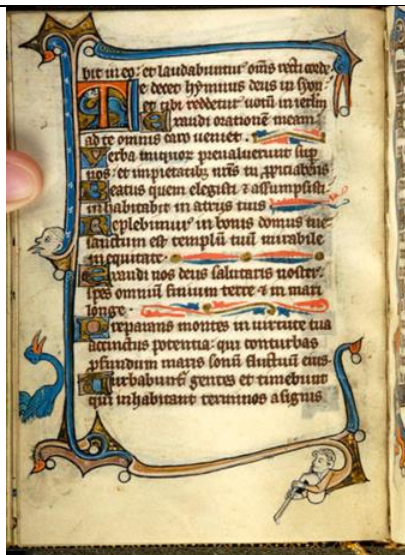 bit in eo: et laudabuntur oms recti corde
Te decet hymnus deus in syon
et tibi reddetur uotu in ierlm
Exaudi oratione meam
ad te omnis caro ueniet.
Verba iniquor preualuerunt sup
nos: et impietatib nris tu ppiciabris
Beatus quem elegisti & assumpsisti
inhabitabit in atrijs tuis
Replebimur in bonis domus tue
sanctum est templu tuu mirabile
in equitate.
Exaudi nos deus salutaris noster
spes omniu finium terre & in mari
longe.
Preparans montes in uirtute tua
accinctus potentia: qui conturbas
pfundum maris sonu fluctuu eius
Turbabunt gentes et timebunt
qui inhabitant terminos a signis